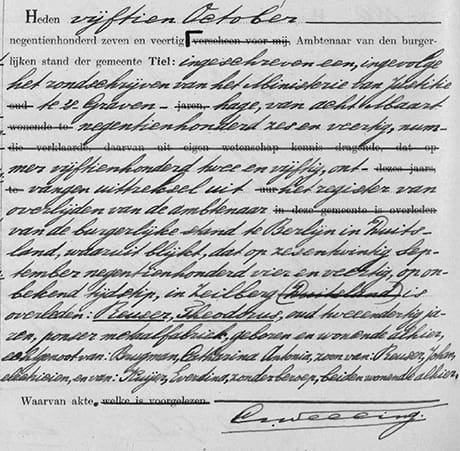 Heden vijftien October
negentienhonderd zeven en veertig verscheen voor mij, Ambtenaar van den burger-
lijken stand der gemeente Tiel: ingeschreven een, ingevolge
het rondschrijven van het Ministerie van Justitie
oud te 's Graven- jaren, hage, van acht Maart
wonende te negentienhonderd zes en veertig, num-
die verklaarde, daarvan uit eigen wetenschap kennis dragende, dat op
mer vijftienhonderd twee en vijftig, ont- dezes jaars,
te vangen uittreksel uit uur het register van
overlijden van de ambtenaar in deze gemeente is overleden
van de burgerlijke stand te Berlijn in Duits-
land, waaruit blijkt, dat op zesentwintig Sep-
tember negentienhonderd vier en veertig, op on-
bekend tijdstip, in Zeilberg (Duitsland) is
overleden: Reuser, Theodorus, oud tweeendertig ja-
ren, ponser metaalfabriek, geboren en wonende alhier,
echtgenoot van: Brugman, Catharina Antonia, zoon van: Reuser, Johan,
elektricien, en van: Kuijer, Everdina, zonder beroep, beiden wonende alhier.
Waarvan akte, welke is voorgelezen.